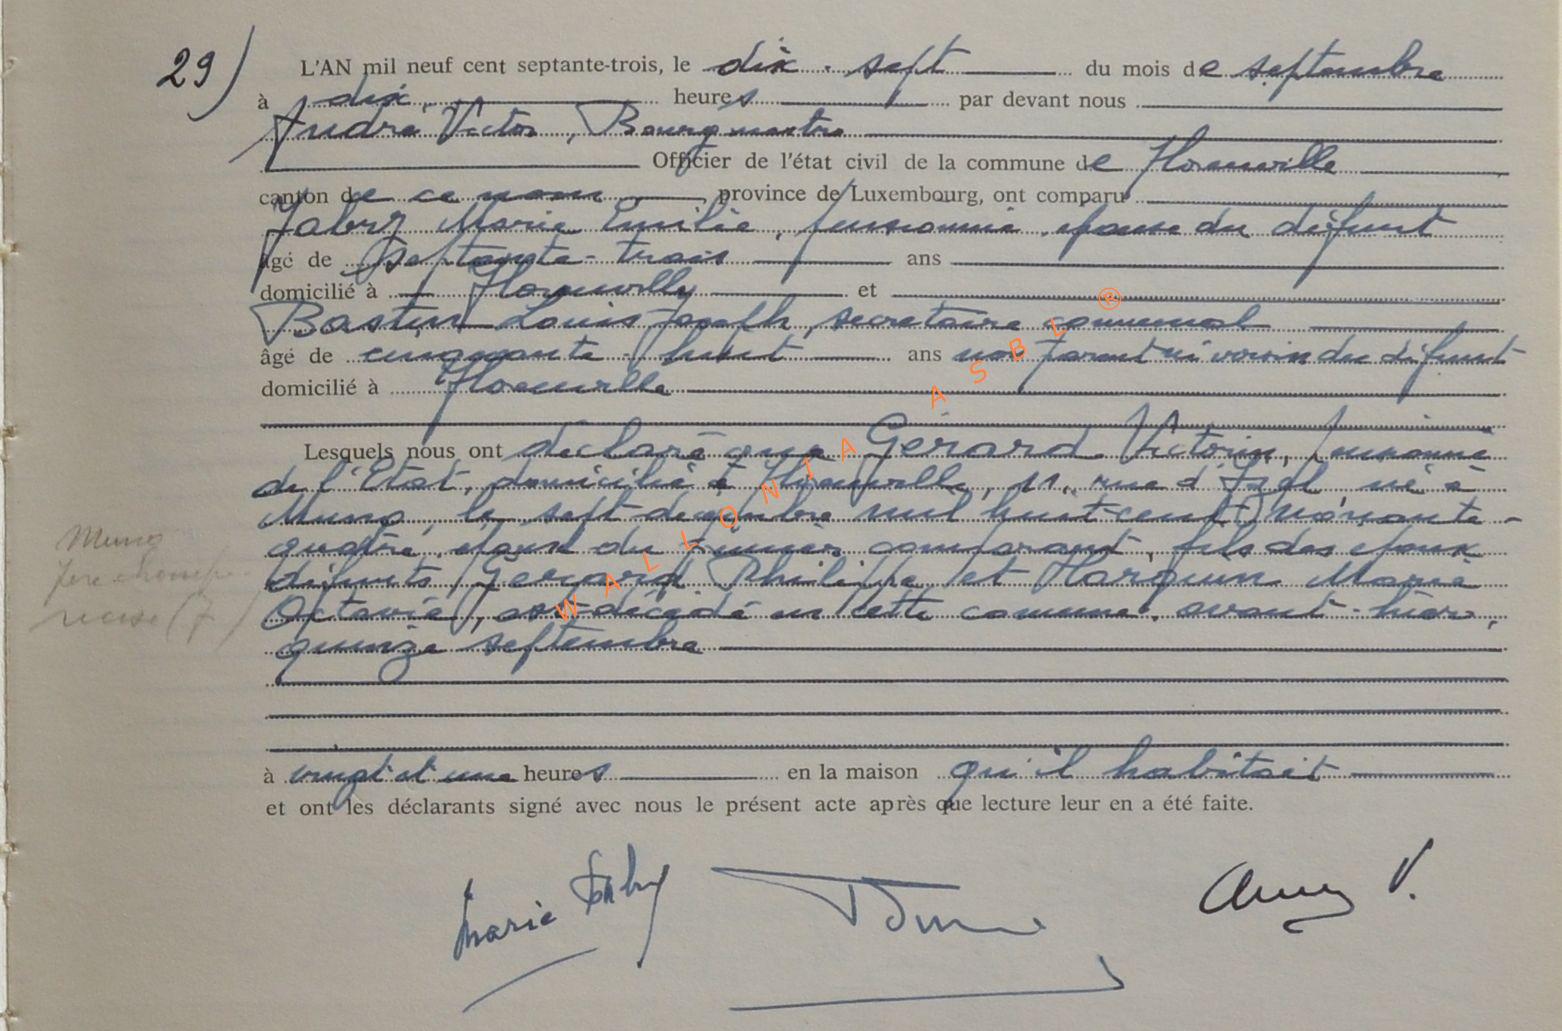 29)
L'AN mil neuf cent septante-trois, le dix-sept du mois de septembre
à dix heures par devant nous
André Victor, Bourgmestre
Officier de l'état civil de la commune de Florenville
canton de ce nom, province de Luxembourg, ont comparu
Fabry Marie Emilie, pensionnée, épouse du défunt
âgé de septante-trois ans
domicilié à Florenville et
Bastin Louis Joseph, secrétaire communal
âgé de cinquante-huit ans non parent ni voisin du défunt
domicilié à Florenville
Lesquels nous ont déclaré que Gérard Victorin, pensionné
de l'Etat, domicilié à Florenville, 11, rue d'Izel, né à
Muno, le sept décembre mil huit cent nonante-
quatre, époux du premier comparant, fils des époux
défunts Gérard Philippe et Harquin Marie
Octavie, est décédé en cette commune, avant-hier,
quinze septembre
à vingt et une heures en la maison qu'il habitait
et ont les déclarants signé avec nous le présent acte après que lecture leur en a été faite.
Muno
(7)
Marie Fabry
V.
WALLONIA ASBL ®